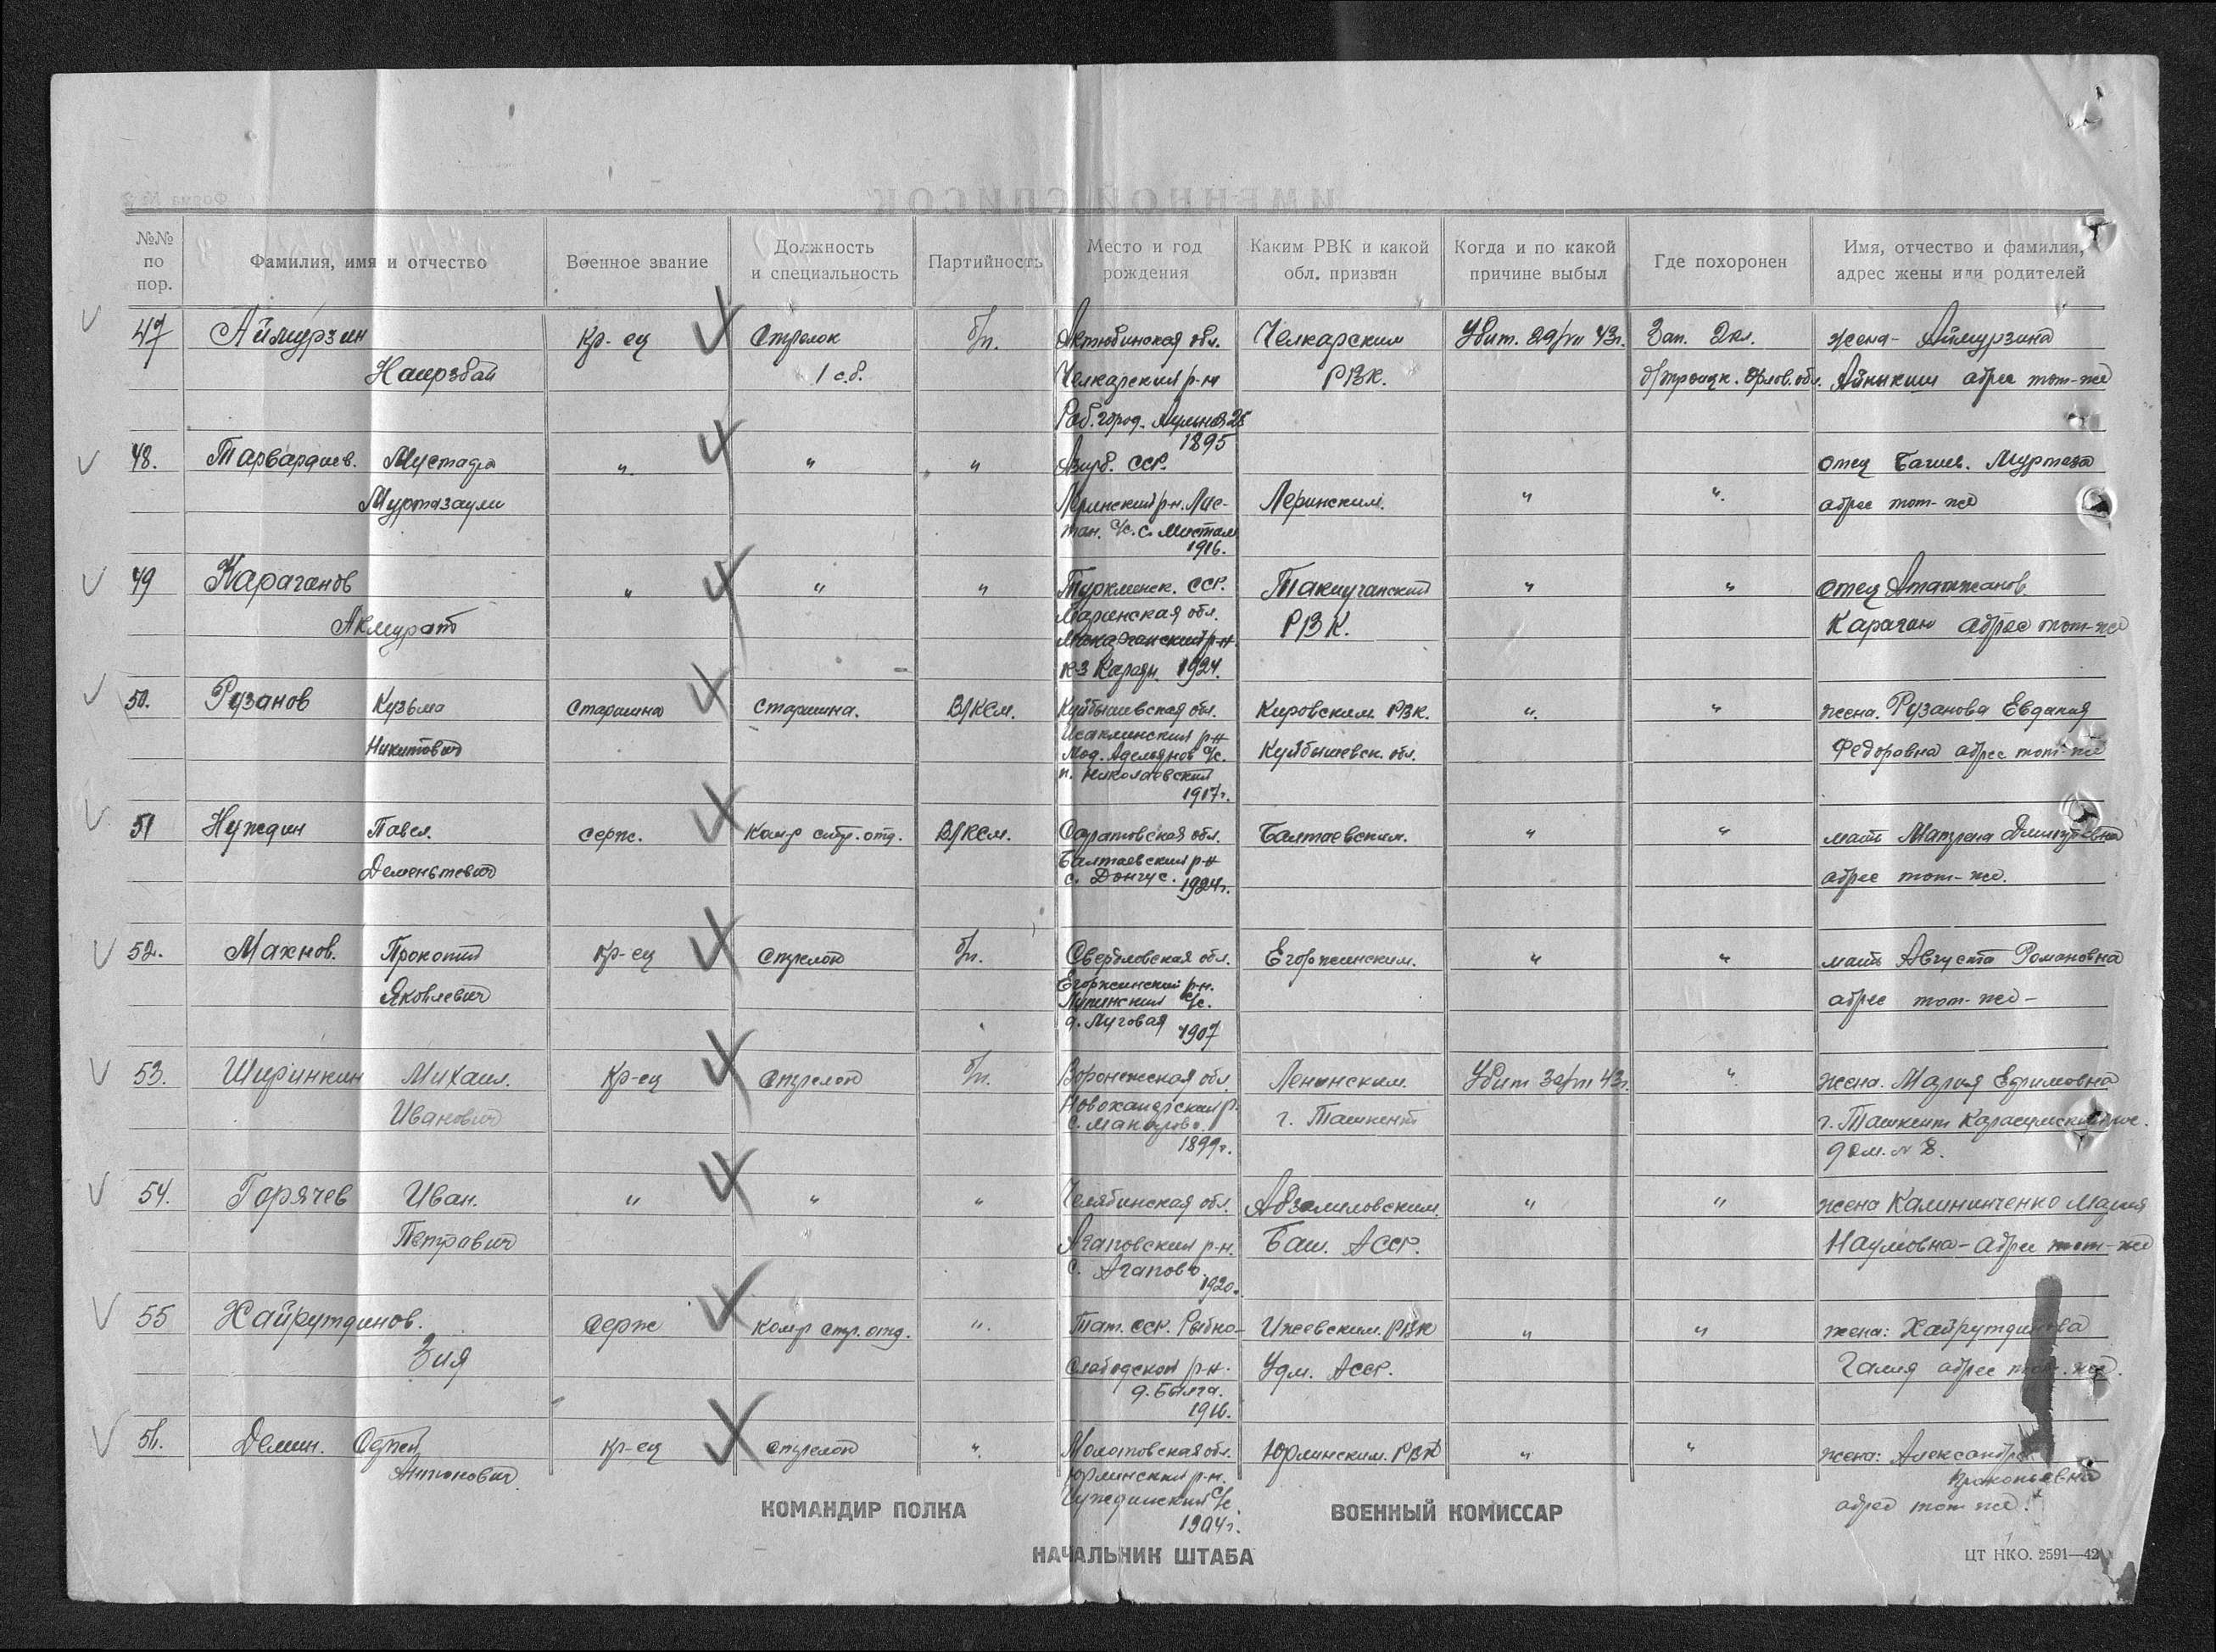 ИМЕННОЙ СПИСОК
Форма № 2
№№ по пор.
Фамилия, имя и отчество
Военное звание
Должность и специальность
Партийность
Место и год рождения
Каким РВК и какой обл. призван
Когда и по какой причине выбыл
Где похоронен
Имя, отчество и фамилия, адрес жены или родителей
47 Аймурзин кр-ец Стрелок б/п. Актюбинская обл. Челкарским Убит. 29/VII 43г. Зап. 2км. жена- Аймурзина
1 с.б. Челкарский р-н РВК. Орлов. обл. адрес тот-же
Раб. город.
1895
48. Мустафа " " " Азерб. ССР. отец Муртаза
Леринский р-н. Лас- Леринским. " " адрес тот-же
тан. с/с. с.
1916.
49 Караганов " " " Туркменск. ССР. " " отец
Акмурат Марыйская обл. РВК. Караган адрес тот-же
р-н.
к-з 1924.
50. Рузанов Кузьма Старшина Старшина. ВЛКСМ. Куйбышевская обл. Кировским РВК. " " жена. Рузанова Евдакия
Никитович Исаклинский р-н Куйбышевск. обл. Федоравна адрес тот-же
с/с.
п. Николаевский
1917г.
51 Нуждин Павел. серж. Ком-р стр. отд. ВЛКСМ. Саратовская обл. Балтаевским. " " мать Матрена Дмитревна
Деменьтевич Балтаевский р-н адрес тот-же.
с. Донгуз. 1924г.
52. Махнов. Прокопий Кр-ец стрелок б/п. Свердловская обл. Егоршинским. " " мать Августа Романовна
Яковлевич Егоршинский р-н. адрес тот-же-
с/с.
д. Луговая 1907
53. Ширинкин Михаил. Кр-ец Стрелок б/п. Воронежская обл. Ленинским. Убит 30/VII 43г. " жена. Мария Ефимовна
Иванович Новохаперский р. г. Ташкент г. Ташкент
с. Макарово.
1899г. дом. № 8.
54. Горячев Иван. " " " Челябинская обл. Абзелиловским. " " жена Калининченко Мария
Петрович Агаповский р-н. Баш. АССР. Наумовна- адрес тот-же
с. Агапово.
1920.
55 Хайрутдинов. Серж Ком-р стр. отд. ". Тат. ССР. Рыбно- Ижевским. РВК " " жена: Хайрутдинова
Зия Слободский р-н. Удм. АССР. Галия адрес тот-же.
1916.
56. Демин. Сергей Кр-ец стрелок " Молотовская обл. Юрлинским. РВК " " жена: Александра
Антонович. Юрлинский р-н. Прокопьевна
с/с адрес тот же.
1904г.
КОМАНДИР ПОЛКА
ВОЕННЫЙ КОМИССАР
НАЧАЛЬНИК ШТАБА
ЦТ НКО. 2591—42